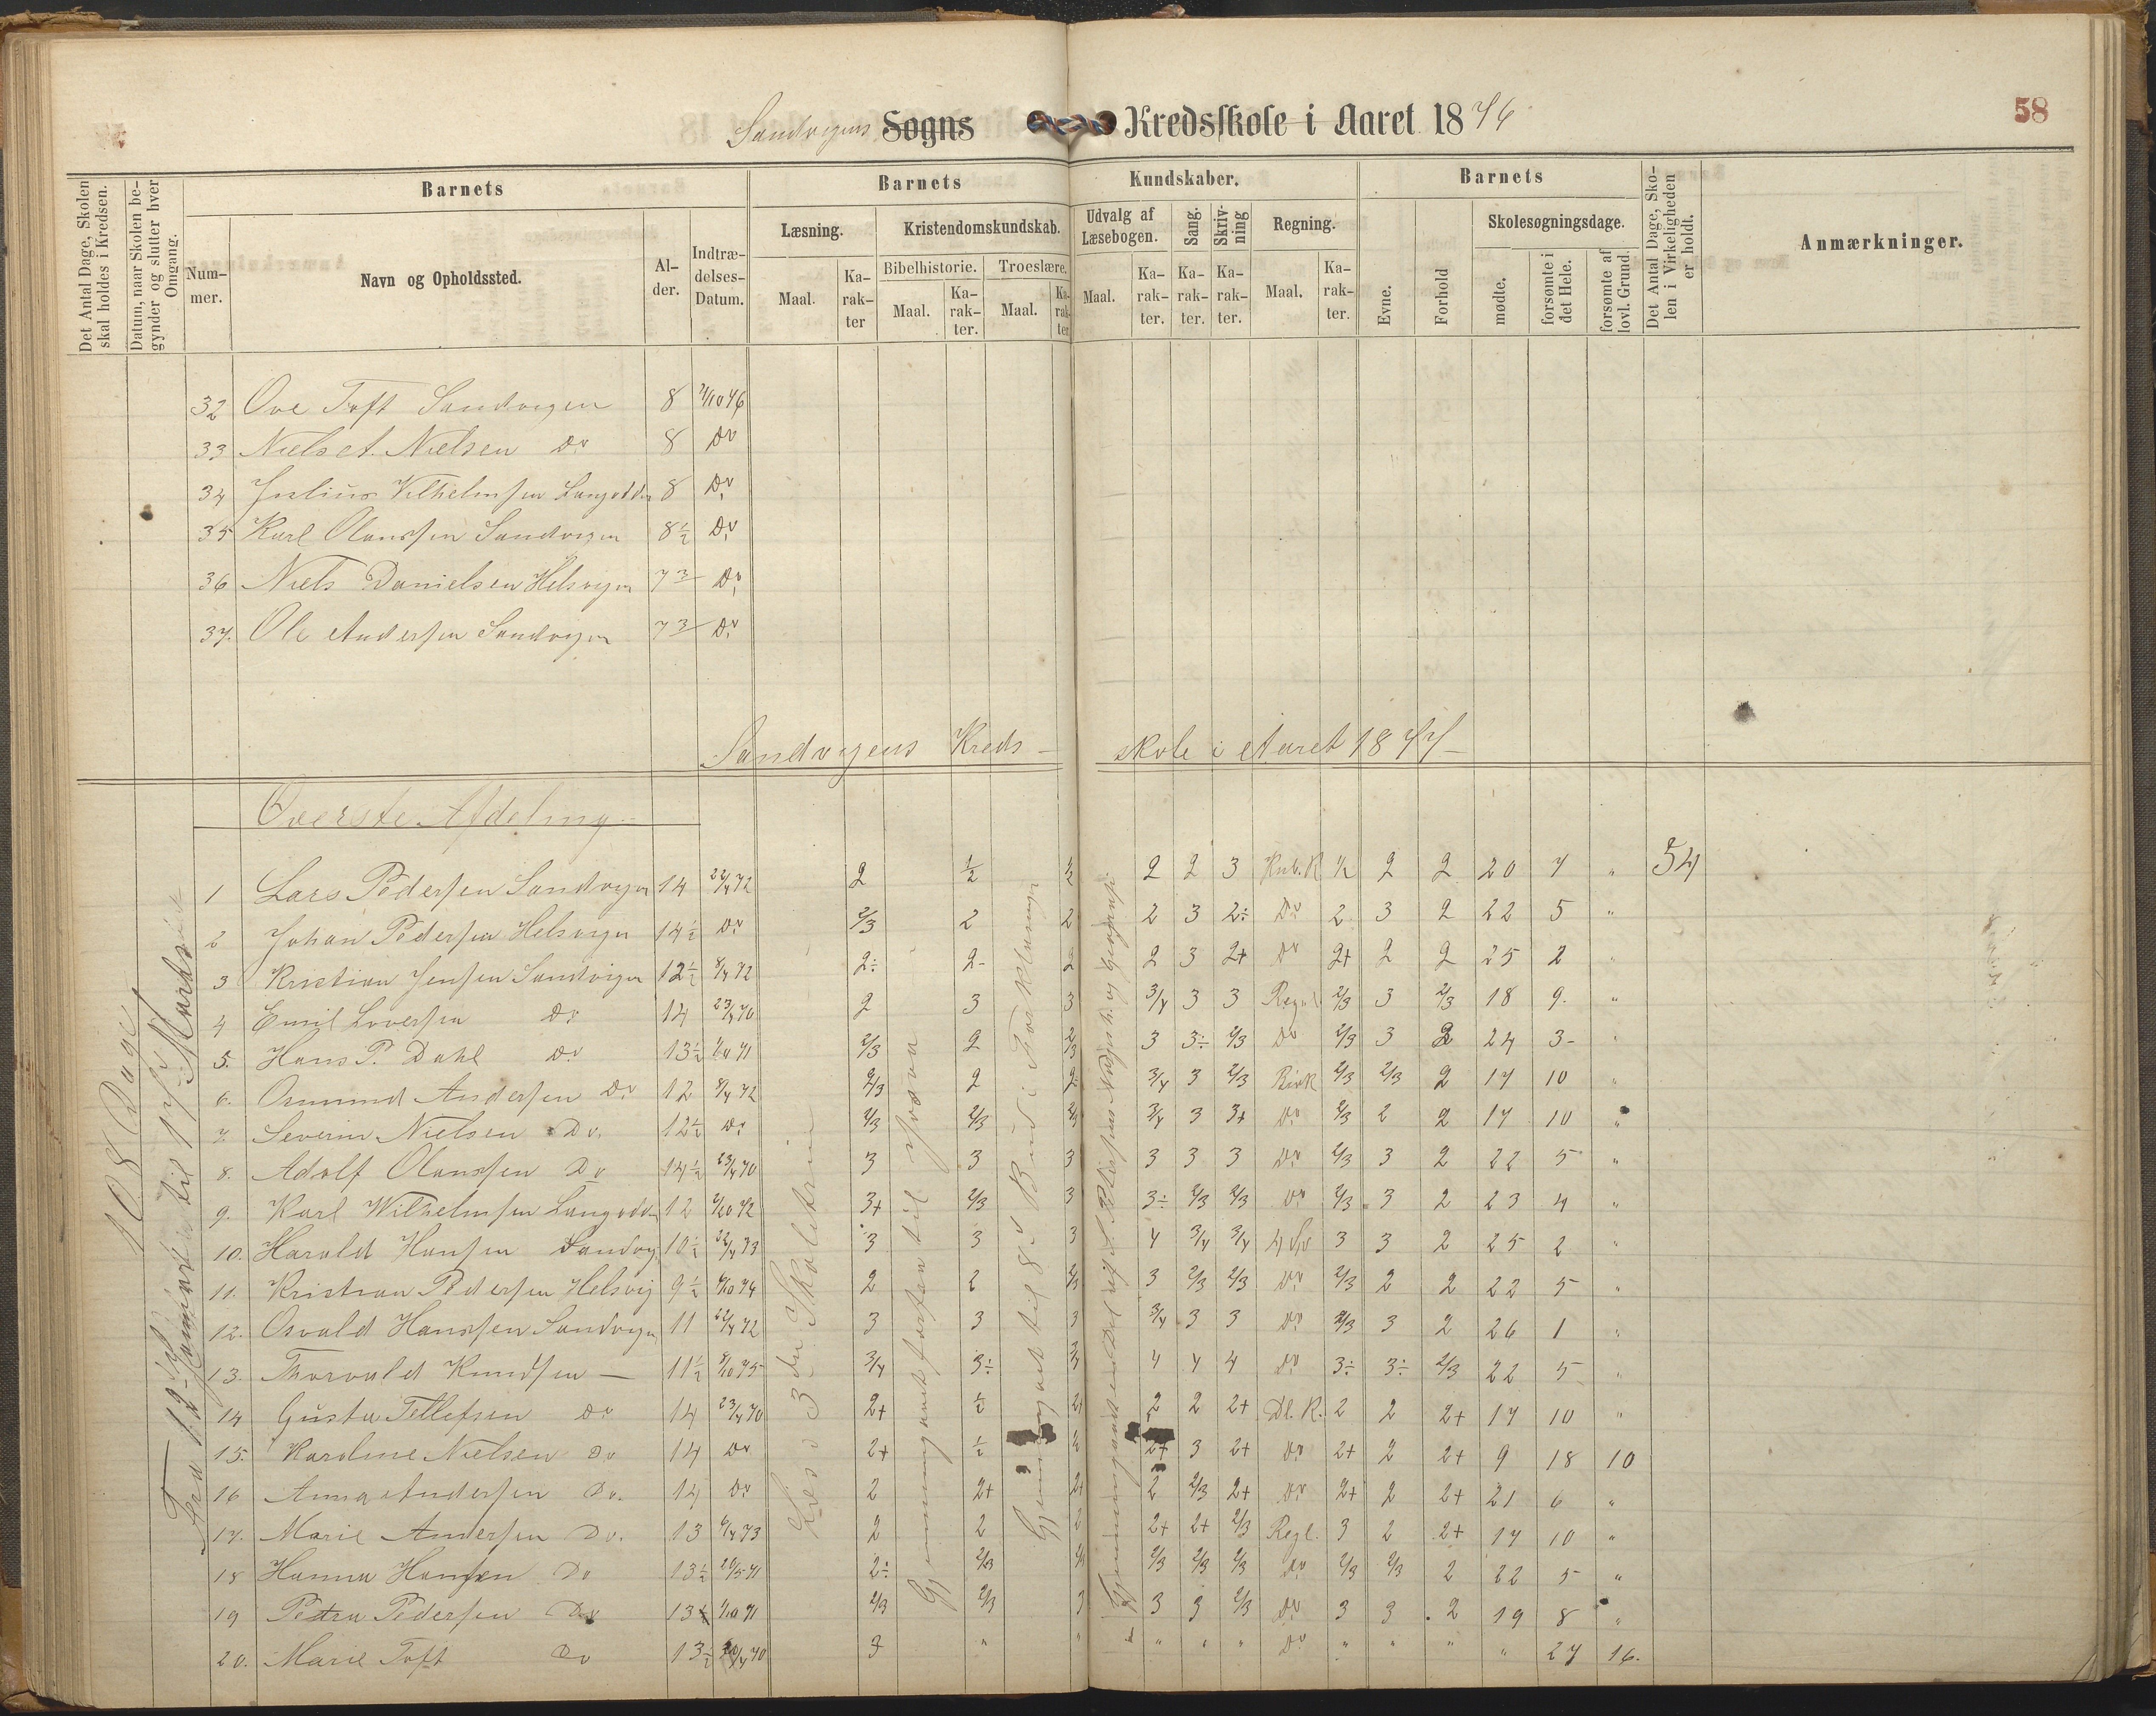 58
Sandvigens Sogns Kredsskole i Aaret 1876
Det Antal Dage, Skolen skal holdes i Kredsen.
Datum, naar Skolen begynder og slutter hver Omgang.
Barnets
Nummer.
Navn og Opholdssted.
Alder.
Indtrædelses-Datum.
Barnets Kundskaber.
Læsning.
Maal.
Karakter
Kristendomskundskab.
Bibelhistorie.
Maal.
Karakter.
Troeslære.
Maal.
Karakter
Udvalg af Læsebogen.
Maal.
Karakter.
Sang.
Karakter.
Skrivning
Karakter.
Regning.
Maal.
Karakter.
Barnets
Evne.
Forhold
Skolesøgningsdage.
mødte.
forsømte i det Hele.
forsømte af lovl. Grund.
Det Antal Dage, Skolen i Virkeligheden er holdt.
Anmærkninger.
32 Ove Toft Sandvigen 8
33 Niels A. Nielsen Do 8 Do
34 Julius Vilhelmsen 8 Do
35 Karl Olaussen Sandvigen 8½ Do
36 Niels Danielsen Helsvigen 7 Do
37. Ole Andersen Sandvigen 7 Do
Sandvigens Kreds- skole i Aaret 1877
Øverste Afdeling
108 Dage
Fra 12te Januar til 17de Marts
Læs. 3die Skoletrin
Gjennemgaaet
1 Lars Pedersen Sandvigen 14 22/4 72 2 ½ ½ 2 2 3 ½ 2 2 20 7 " 54
2 Johan Pedersen Helsvigen 14½ Do 2/3 2 2 2 3 2÷ Do 2 3 2 22 5 "
3 Kristian Jensen Sandvigen 12½ 8/4 72 2÷ 2- 2 2 3 2+ Do 2+ 2 2 25 2 "
4 Emil Do 14 23/4 70 2 3 3 3/4 3 3 2/3 3 2/3 18 9. "
5. Hans P. Dahl Do 13½ 2/3 2 2/3 3 3÷ 2/3 Do 2/3 3 2 24 3- "
6. Osmund Andersen Do 12 8/4 72 2/3 2 2 3/4 3 2/3 2/3 2/3 2 17 10 "
7. Severin Nielsen Do. 12½ Do 2/3 2/3 2/3 3/4 3 3+ Do 2/3 2 2 17 10 "
8. Adolf Olaussen Do 14½ 23/4 70 3 3 3 3 3 3 Do 2/3 3 2 22 5 "
9. Karl Wilhelmsen 12 3+ 2/3 3 3÷ 2/3 2/3 Do 2/3 3 2 23 4 "
10. Harald Hansen Sandvig 10½ 22/4 73 3 3 3 4 3/4 3/4 3 3 2 25 2 "
11. Kristian Pedersen Helsvig 9½ 2 2 2/3 3 2/3 2/3 Do 2/3 2 2 22 5 "
12. Osvald Hanssen Sandvigen 11 22/4 72 3 3 3 3/4 3 3 Do 2/3 3 2 26 1 "
13. Thorvald Knudsen — 11½ 3/4 3÷ 3/4 4 4 4 Do 3÷ 3÷ 2/3 22 5 "
14 Gusta Tellefsen Do 14 23/4 70 2+ ½ 2+ 2 2 2+ Dl. R. 2 2 2+ 17 10 "
15. Karoline Nielsen Do 14 Do 2+ ½ ½ 2+ 3 2+ Do 2+ 2 2+ 9 18 10
16 Anna Andersen Do. 14 Do 2 2+ 2+ 2 2/3 2+ Do 2+ 2 2+ 21 6 "
17. Marie Andersen Do. 13 2 2 2 2+ 2+ 2/3 Regl. 3 2 2+ 17 10 "
18 Hanna Hansen Do 13½ 2÷ 2/3 2/3 2/3 2/3 2/3 Do 2/3 2/3 2 22 5 "
19 Petra Pedersen Do 2/3 2/3 3 3 3 2/3 Do 3 3 2 19 8 "
20. Marie Toft Do 13½ 3 " " " " " Do " " " " 27 16.